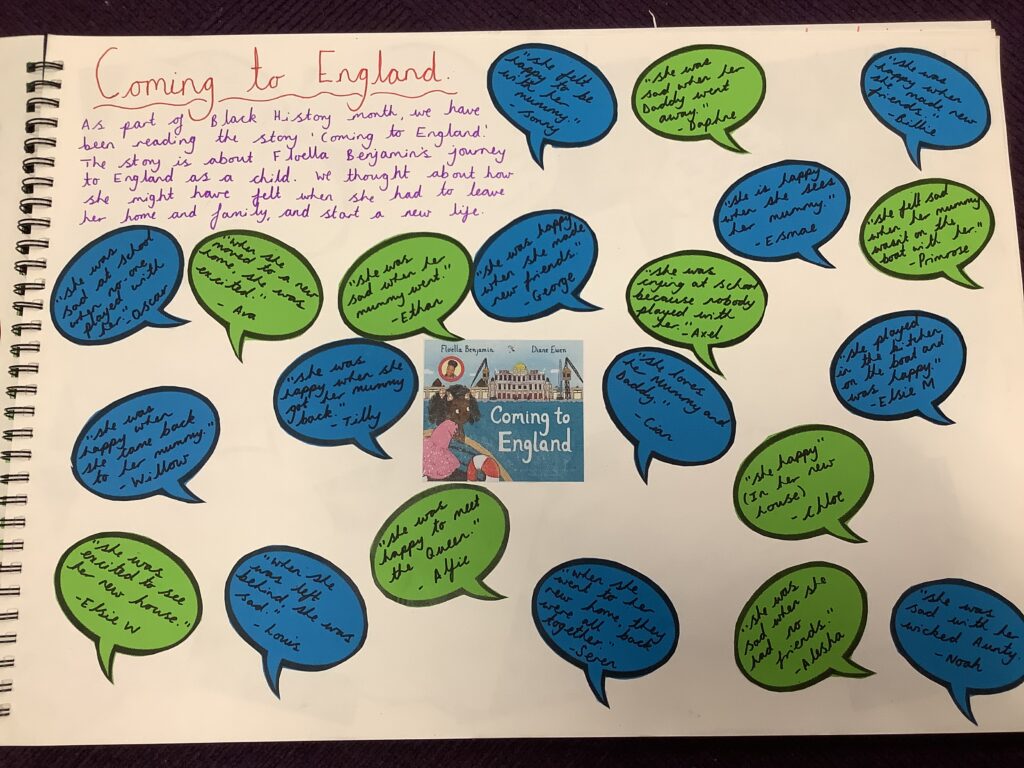 Coming to England.
As part of Black History month, we have
been reading the story 'Coming to England.'
The story is about Floella Benjamin's journey
to England as a child. We thought about how
she might have felt when she had to leave
her home and family, and start a new life.
"she felt
happy to be
with her
mummy."
- Sonny
"she was
sad when her
Daddy went
away."
- Daphne
"she was
happy when
she made new
friends."
- Billie
"she is happy
when she sees
her mummy."
- Esmae
"she felt sad
when her mummy
wasn't on the
boat with her."
- Primrose
"she was
sad at school
when no one
played with
her." - Oscar
"when she
moved to a new
home, she was
excited."
- Ava
"she was
sad when her
mummy went"
- Ethan
"she was happy
when she made
new friends."
- George
"she was
crying at school
because nobody
played with
her." Axel
"she was
happy when she
got her mummy
back."
- Tilly
Floella Benjamin & Diane Ewen
Coming to
England
"she loves
her Mummy and
Daddy."
- Cian
"she played
in the kitchen
on the boat and
was happy."
- Elsie M
"she was
happy when
she came back
to her mummy."
- Willow
"she happy"
(In her new
house)
- Chloe
"she was
happy to meet
the Queen."
- Alfie
"she was
excited to see
her new house."
- Elsie W
"when she
was left
behind, she was
sad."
- Louis
"when she
went to her
new home, they
were all back
together."
- Seren
"she was
sad when she
had no
friends."
- Alesha
"she was
sad with her
wicked Aunty.
- Noah